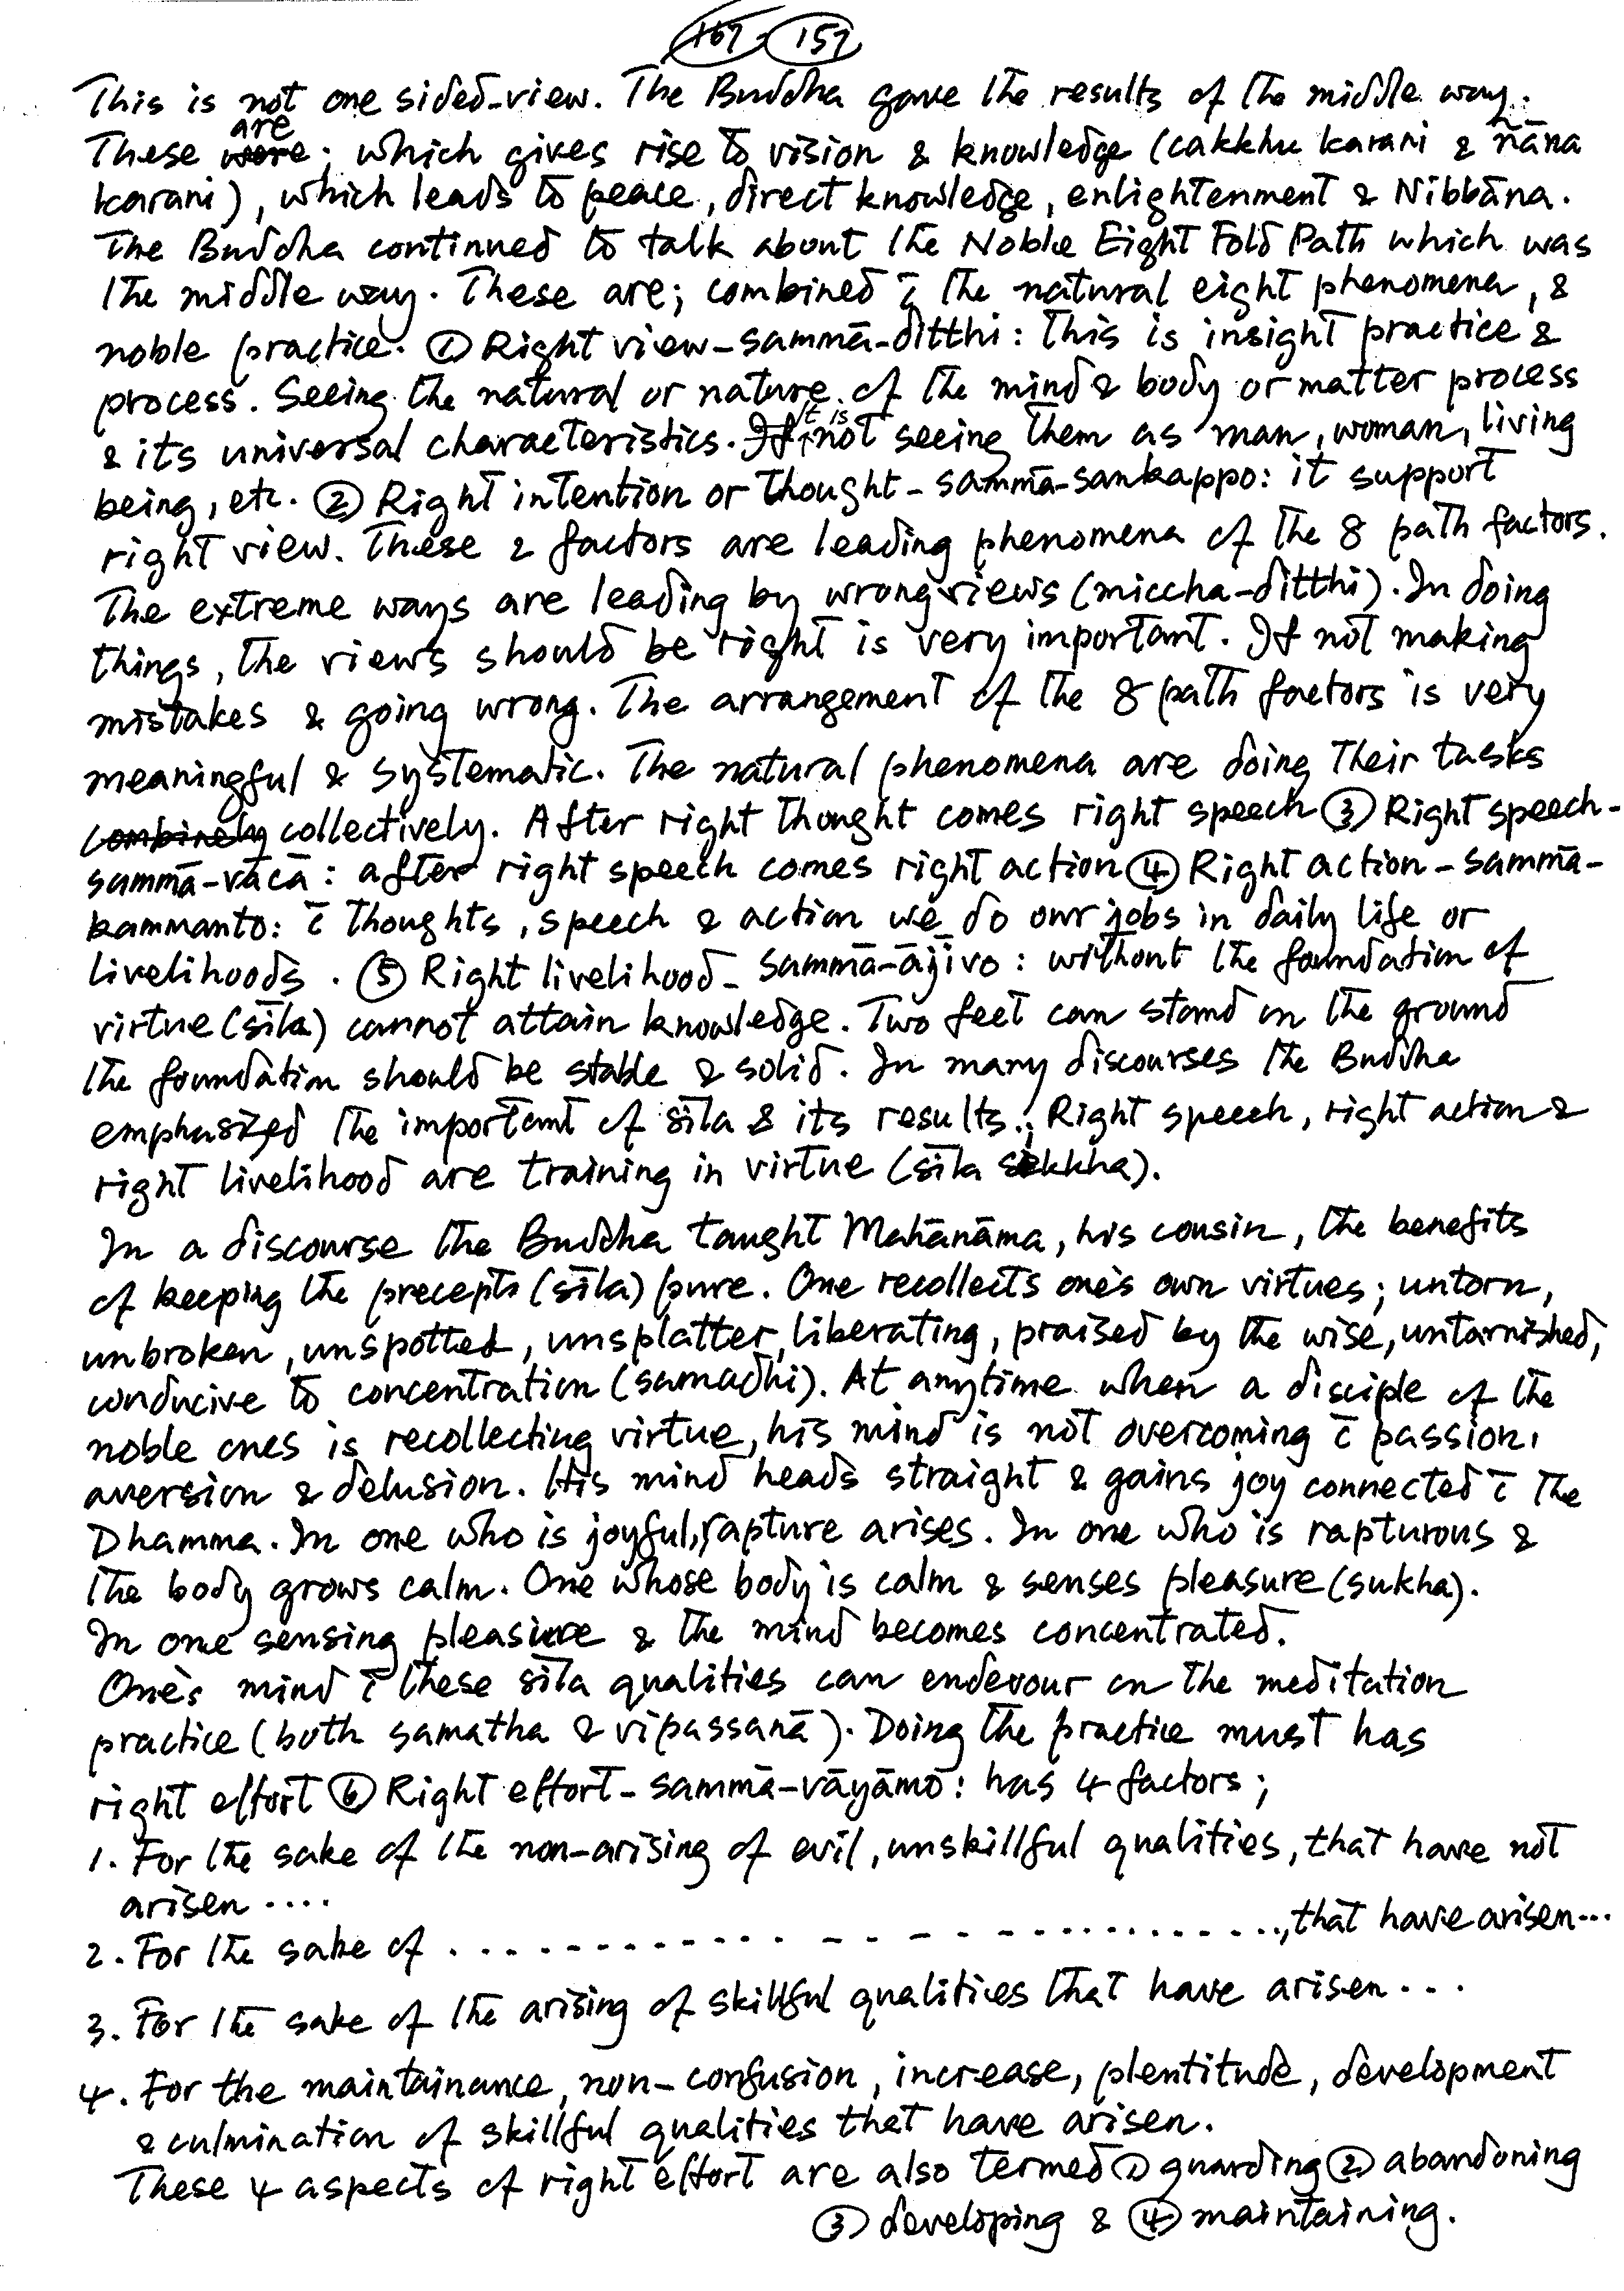 167 157
This is not one sided-view. The Buddha gave the results of the middle way.
These were are; which gives rise to vision & knowledge (cakkhu karani & ñāna
karani), which leads to peace, direct knowledge, enlightenment & Nibbāna.
The Buddha continued to talk about the Noble Eight Fold Path which was
the middle way. These are; combined c̄ the natural eight phenomena, &
noble practice. ① Right view-sammā-ditthi: this is insight practice &
process. Seeing the natural or nature of the mind & body or matter process
& its universal characteristics. It is not seeing them as man, woman, living
being, etc. ② Right intention or thought-sammā-sankappo: it support
right view. These 2 factors are leading phenomena of the 8 path factors.
The extreme ways are leading by wrong views (miccha-ditthi). In doing
things, the views should be right is very important. If not making
mistakes & going wrong. The arrangement of the 8 path factors is very
meaningful & systematic. The natural phenomena are doing their tasks
combinely collectively. After right thought comes right speech ③ Right speech-
sammā-vācā: after right speech comes right action ④ Right action-sammā-
kammanto: c̄ thoughts, speech & action we do our jobs in daily life or
livelihoods. ⑤ Right livelihood-sammā-ājīvo: without the foundation of
virtue (sīla) cannot attain knowledge. Two feet can stand on the ground
the foundation should be stable & solid. In many discourses the Buddha
emphasized the important of sīla & its results.; Right speech, right action &
right livelihood are training in virtue (sīla sikkha).
In a discourse the Buddha taught Mahānāma, his cousin, the benefits
of keeping the precepts (sīla) pure. One recollects one's own virtues; untorn,
unbroken, unspotted, unsplatter, liberating, praised by the wise, untarnished,
conducive to concentration (samadhi). At anytime when a disciple of the
noble ones is recollecting virtue, his mind is not overcoming c̄ passion,
aversion & delusion. His mind heads straight & gains joy connected c̄ the
Dhamma. In one who is joyful, rapture arises. In one who is rapturous &
the body grows calm. One whose body is calm & senses pleasure (sukha).
In one sensing pleasure & the mind becomes concentrated.
One's mind c̄ these sīla qualities can endevour on the meditation
practice (both samatha & vipassanā). Doing the practice must has
right effort ⑥ Right effort-sammā-vāyāmo: has 4 factors;
1. For the sake of the non-arising of evil, unskillful qualities, that have not
arisen ....
2. For the sake of ............................, that have arisen...
3. For the sake of the arising of skillful qualities that have arisen...
4. For the maintainance, non-confusion, increase, plentitude, development
& culmination of skillful qualities that have arisen.
These 4 aspects of right effort are also termed ① guarding ② abandoning
③ developing & ④ maintaining.